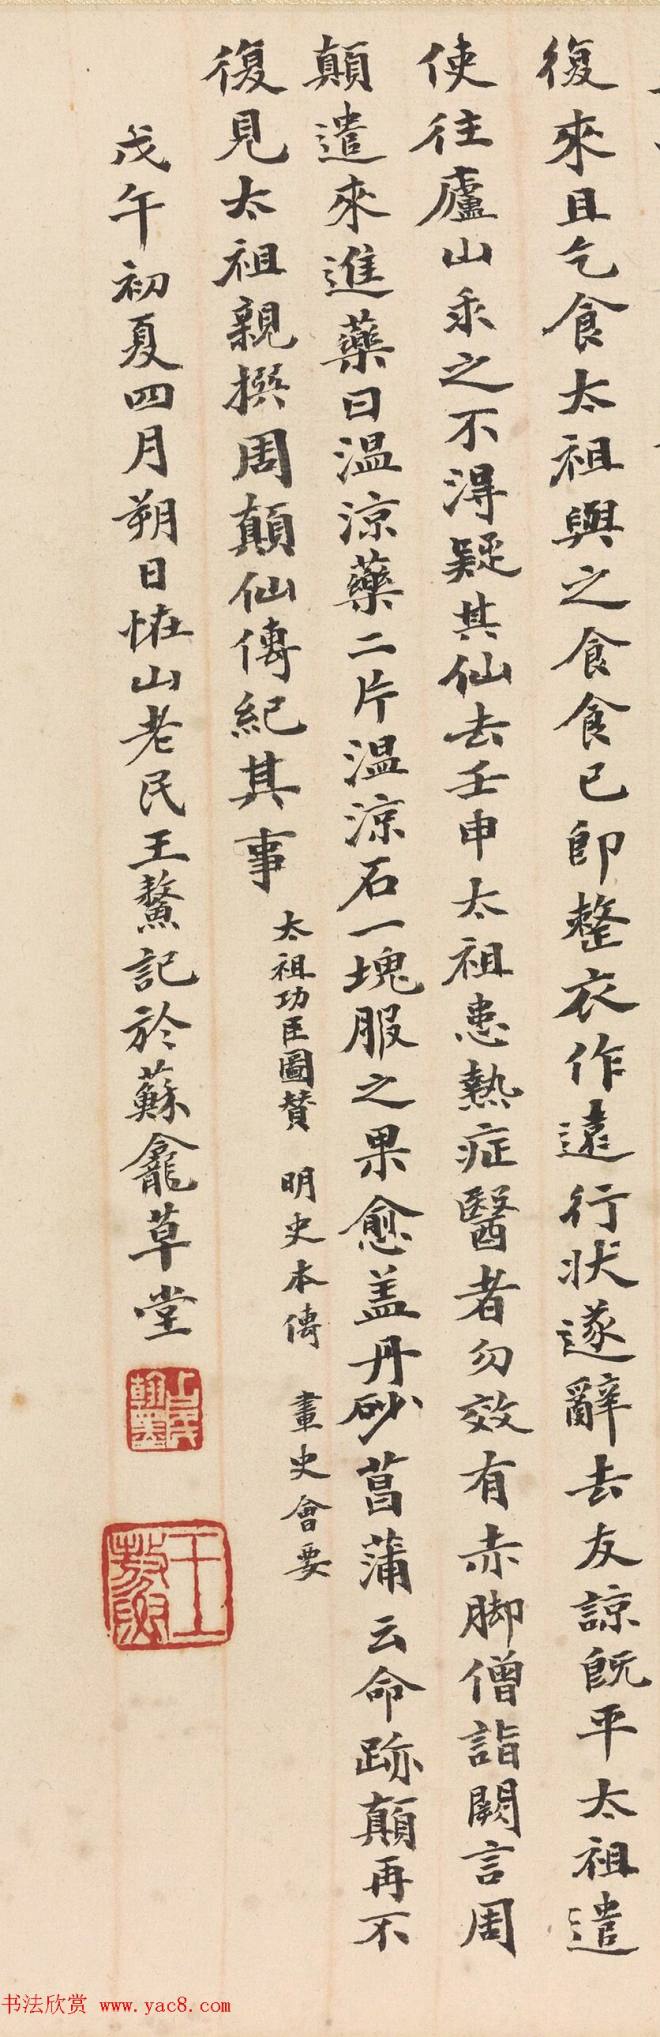 復來且乞食太祖與之食食已即整衣作遠行狀遂辭去友諒既平太祖遣
使往廬山求之不得疑其仙去壬申太祖患熱症醫者勿效有赤脚僧詣闕言周
顛遣來進藥曰温涼藥二片温涼石一塊服之果愈盖丹砂菖蒲云命跡顛再不
復見太祖親撰周顛仙傳紀其事
太祖功臣圖贊 明史本傳 畫史會要
戊午初夏四月朔日恠山老民王鰲記於蘇龕草堂
书法欣赏 www.yac8.com